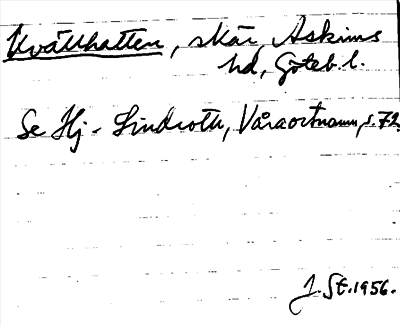 Kvällhatten, skär, Askims
hd, Göteb. l.
Se Hj. Lindroth, Våra ortnamn, s. 72.
J. St. 1956.